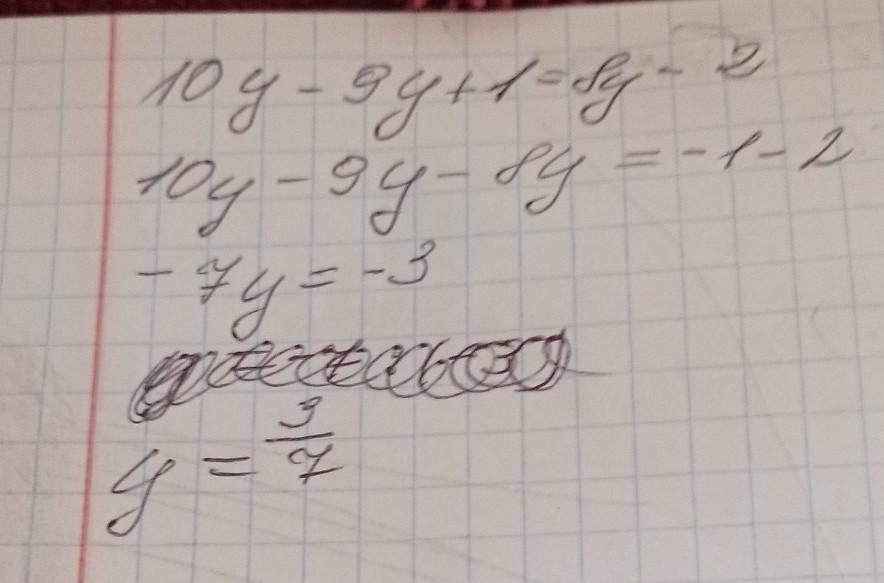 10y - 9y + 1 = 8y - 2
10y - 9y - 8y = -1 - 2
- 7y = -3
y = 3/7